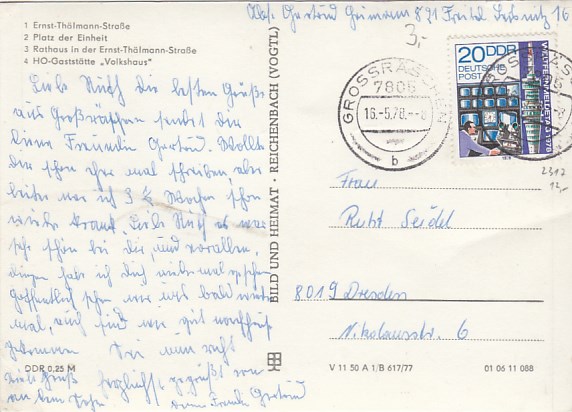 Abs. Gertrud 821 Freital 16
1 Ernst-Thälmann-Straße
2 Platz der Einheit
3 Rathaus in der Ernst-Thälmann-Straße
4 HO-Gaststätte „Volkshaus"
3,-
20 DDR
DEUTSCHE
POST
GROSSRÄSCHEN
7805
16.-5.78.--8
b
Liebe Ruth die besten Grüße
aus Großräschen sendet dir
deine Freundin Gertrud. Wollte
dir schon eher mal schreiben, aber
leider war ich 3 ½ Wochen schon
wieder krank. Liebe Ruth es war
sehr schön bei dir, und vor allen
dingen hab ich dich wieder mal gesehen
hoffentlich sehen wir uns bald wieder
mal, auch sind wir gut nach Haus
gekommen. Sei nun recht
herzlichst gegrüßt von
deine Freundin Gertrud
Viele Grüße
an
BILD UND HEIMAT · REICHENBACH (VOGTL)
2312
12,-
Frau
Ruth Seidel
8019 Dresden
Nikolausstr. 6
DDR 0,25 M
V 11 50 A 1/B 617/77
01 06 11 088